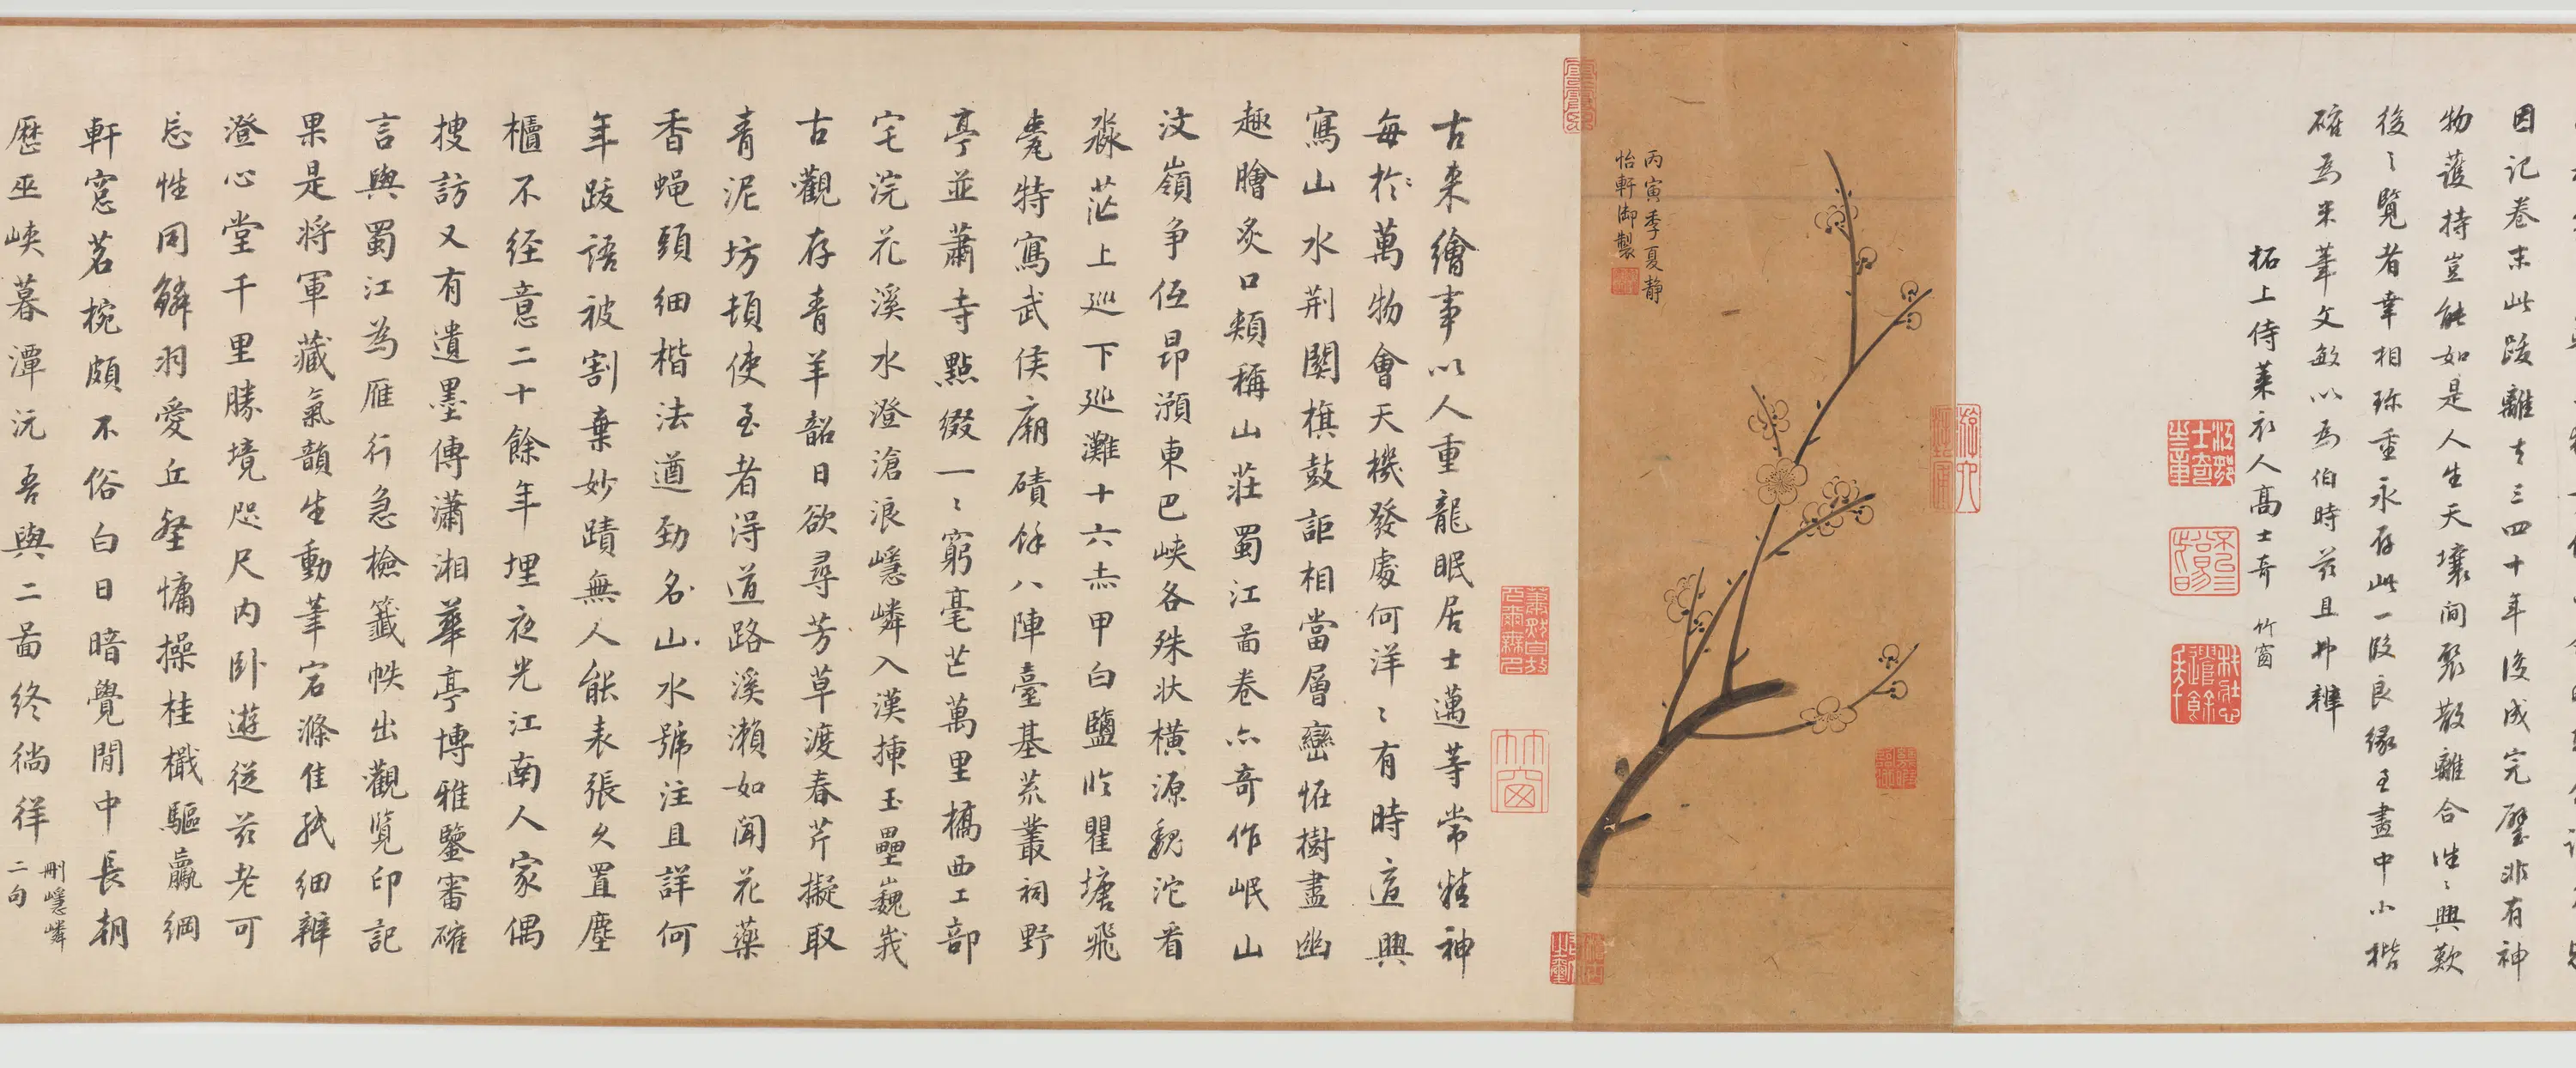 因記卷末此跋離去三四十年後成完璧非有神
物護持豈能如是人生天壤間聚散離合往〻興歎
後之覽者幸相珎重永存此一段良緣至畫中小楷
確為米筆文敏以為伯時茲且弗辨
柘上侍萊衣人高士奇 竹窗
丙寅季夏靜
怡軒御製
竹窗
古來繪事以人重龍眠居士邁等常精神
每於〻萬物會天機發處何洋〻有時逭興
寫山水荆關旗鼓詎相當層巒恠樹盡幽
趣膾炙口頰稱山莊蜀江啚卷亦奇作岷山
汶嶺爭低昂瀕東巴峽各殊狀橫源魏沱看
淼茫上巡下巡灘十六赤甲白鹽臨瞿塘飛
甍特寫武侯廟磧餘八陣臺基荒叢祠野
亭並蕭寺點綴一〻窮毫芒萬里橋西工部
宅浣花溪水澄滄浪嶾嶙入漢揷玉壘巍峩
古觀存青羊韶日欲尋芳草渡春芹擬取
青泥坊頓使至者淂道路溪瀨如聞花藥
香蝇頭細楷法遒勁名山水號注且詳何
年跋語被割棄妙蹟無人能表張久置塵
櫃不經意二十餘年埋夜光江南人家偶
搜訪又有遺墨傳瀟湘華亭博雅鑒審確
言與蜀江為雁行急檢籤帙出觀覽印記
果是將軍藏氣韻生動筆宕滌佳紙久細辨
澄心堂千里勝境咫尺内卧遊從茲老可
忘性同鱗羽愛丘壑慵操桂檝驅羸綱
軒窓茗椀頗不俗白日暗覺閒中長朝
歷巫峽暮潭沅吾與二啚終徜徉
刪嶾嶙
二句